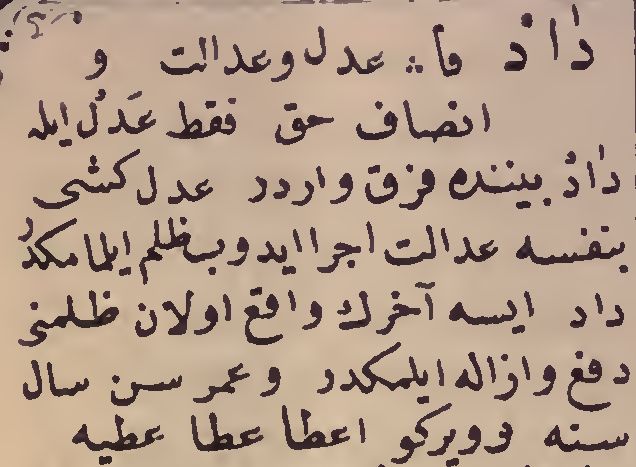 داد فا: عدل وعدالت و
انصاف حق فقط عدل ايله
داد بيننده فرق واردر عدل كشى
بنفسه عدالت اجرا ايدوب ظلم ايلمامكدر
داد ايسه آخرك واقع اولان ظلمنى
دفع وازاله ايلمكدر وعمر سن سال
سنه وويركو اعطا عطا عطيه